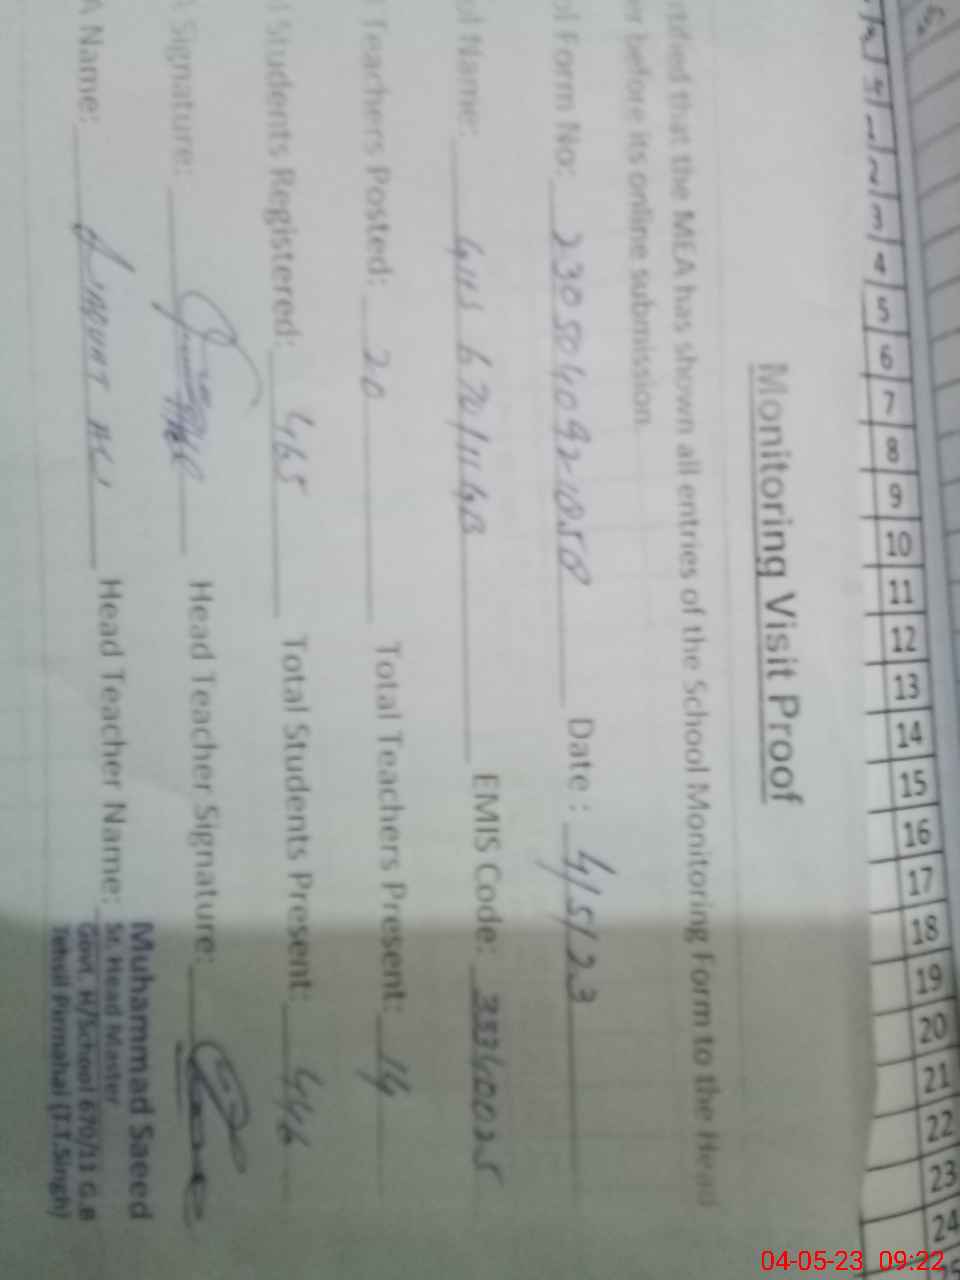 Monitoring Visit Proof
that the MEA has shown all entries of the School Monitoring Form to the Head
before its online submission
Form No: Date: 4/5/23
Name: GHS 670/11 GB EMIS Code: 33340025
Teachers Posted: 20 Total Teachers Present: 14
Students Registered: 465 Total Students Present: 446
Signature: Head Teacher Signature:
A Name: Head Teacher Name:
Muhammad Saeed
Sr. Head Master
Govt. H/School 670/11 G.B
Tehsil Pirmahal (T.T.Singh)
4 5 6 7 8 9 10 11 12 13 14 15 16 17 18 19 20 21 22 23 24
04-05-23 09:22